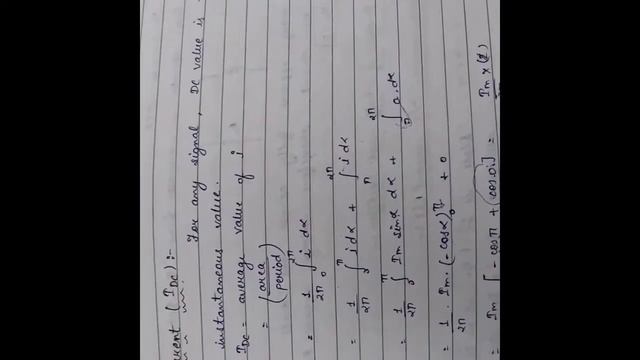 urrent (I_DC) :-
For any signal, DC value is
instantaneous value.
I_DC = average value of i
= (area/period)
= 1/2π ∫_0^2π i dα
= 1/2π ∫_0^π i dα + ∫_π^2π i dα
= 1/2π ∫_0^π I_m sinα dα + ∫_π^2π 0.dα
= 1/2π . I_m . (-cosα)_0^π + 0
= I_m [-cosπ + (cos0)] = I_m x (2)